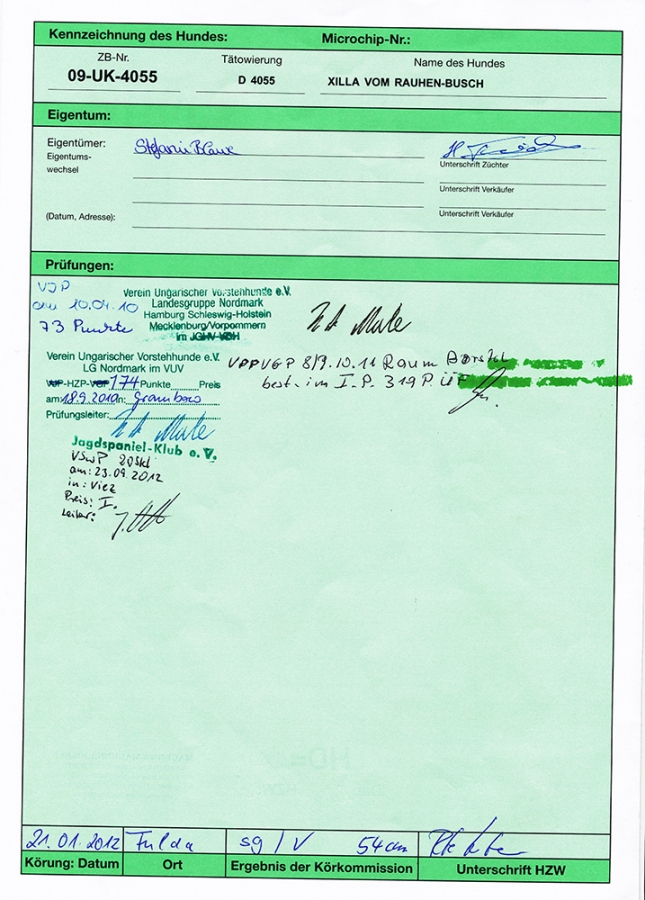 Kennzeichnung des Hundes: Microchip-Nr.:
ZB-Nr. Tätowierung Name des Hundes
09-UK-4055 D 4055 XILLA VOM RAUHEN-BUSCH
Eigentum:
Eigentümer: Stefanie
Eigentums-
wechsel
Unterschrift Züchter
Unterschrift Verkäufer
(Datum, Adresse): Unterschrift Verkäufer
Prüfungen:
VJP
am 10.04.10
73 Punkte
Verein Ungarischer Vorstehhunde e.V.
Landesgruppe Nordmark
Hamburg Schleswig-Holstein
Mecklenburg/Vorpommern
im JGHV VDH
Verein Ungarischer Vorstehhunde e.V.
LG Nordmark im VUV
VJP-HZP-VGP 174 Punkte Preis
am 18.9.2010 in: Grambow
Prüfungsleiter:
VPP VGP 8/9.10.11 Raum Borstel
best. im I. P. 319 P ÜF
Jagdspaniel-Klub e. V.
VSwP 20Std
am: 23.09.2012
in: Viez
Preis: I.
Leiter:
21.01.2012 Fulda sg / V 54cm
Körung: Datum Ort Ergebnis der Körkommission Unterschrift HZW